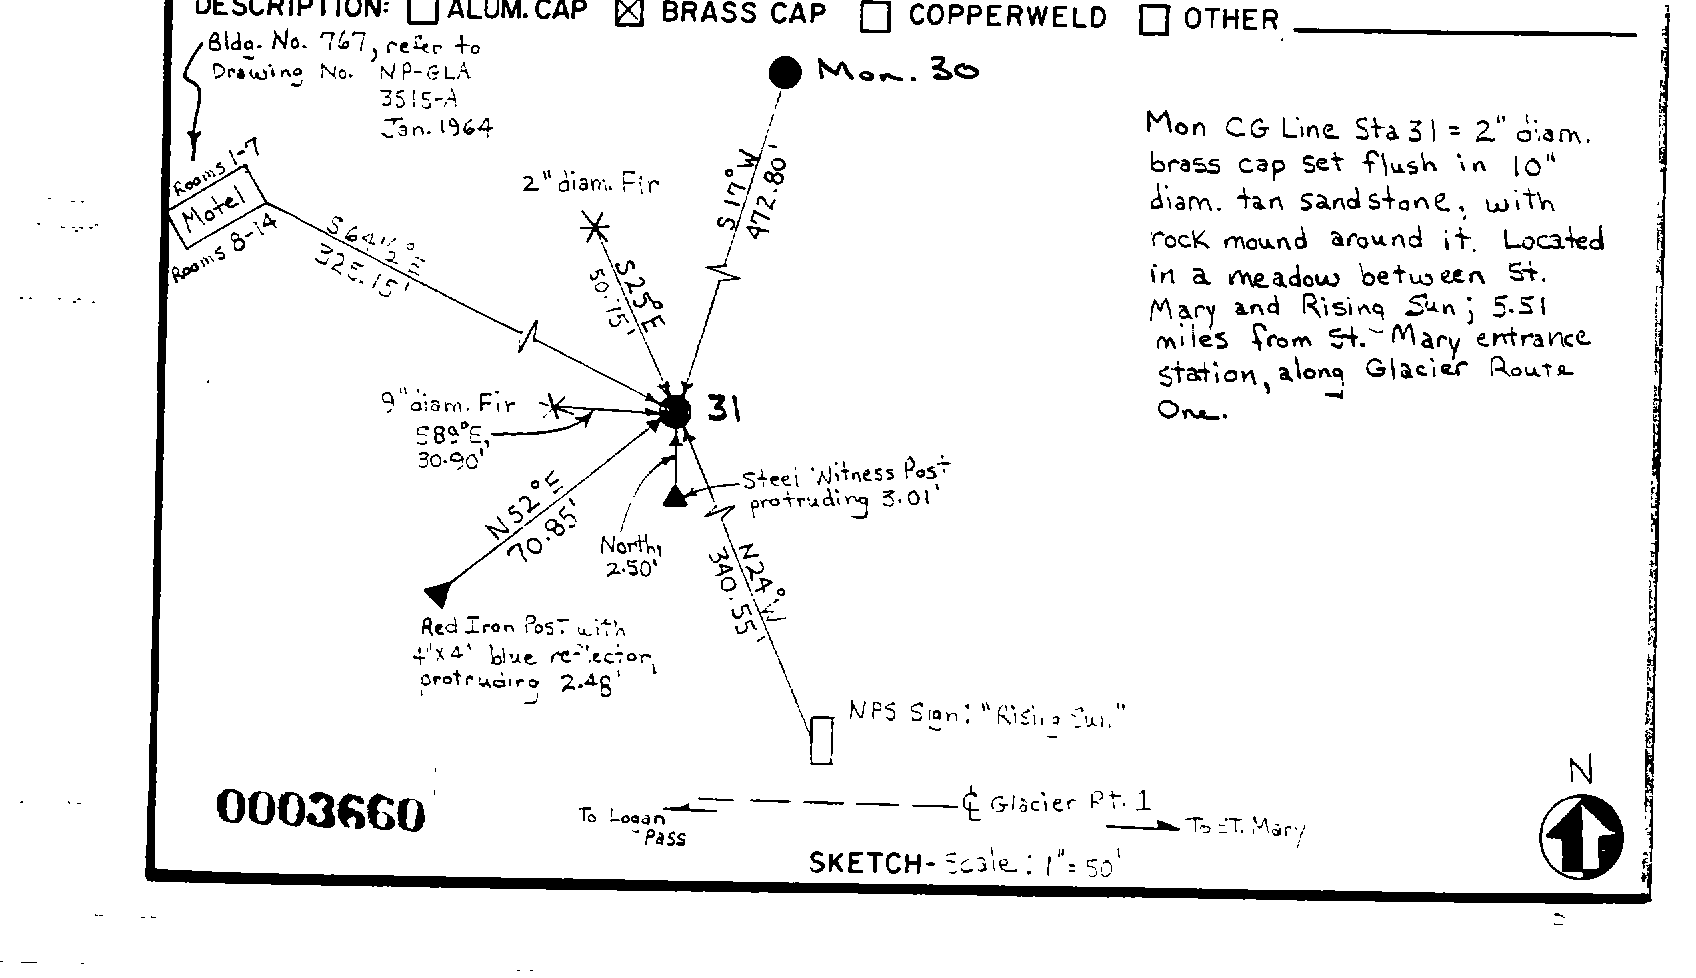 DESCRIPTION: ALUM. CAP BRASS CAP COPPERWELD OTHER
Bldg. No. 767, refer to
Drawing No. NP-GLA
3515-A
Jan. 1964
Mon. 30
Rooms 1-7
Motel
Rooms 8-14
S 64 1/2° E
325.15'
2" diam. Fir
S25°E
50.15'
S 17° W
472.80'
Mon CG Line Sta 31 = 2" diam.
brass cap set flush in 10"
diam. tan sandstone, with
rock mound around it. Located
in a meadow between St.
Mary and Rising Sun; 5.51
miles from St. Mary entrance
station, along Glacier Route
One.
9" diam. Fir
S89°E,
30.90'
31
Steel Witness Post
protruding 3.01'
N52°E
70.85'
North,
2.50'
N24°W
340.55'
Red Iron Post with
4"x4" blue reflector,
protruding 2.48'
NPS Sign: "Rising Sun"
N
0003660
To Logan
Pass
℄ Glacier Rt. 1
To ST. Mary
SKETCH- Scale: 1"= 50'